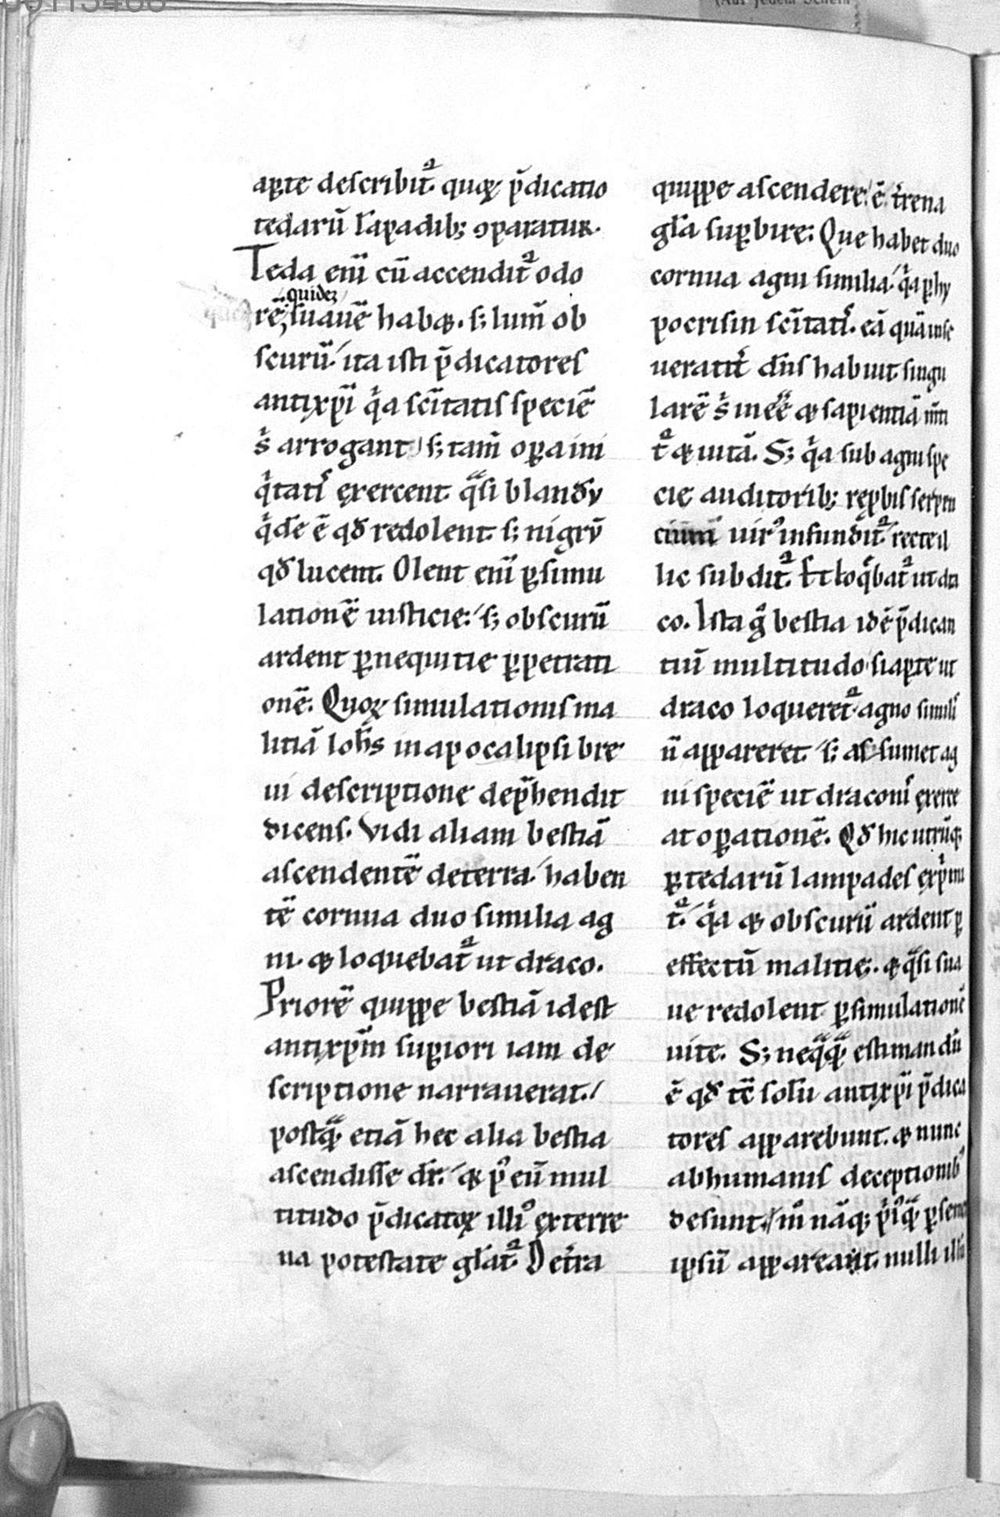 aꝑte deſcribit᷑. quoꝝ p̄dicatio
tedarū lāpadib; ꝯparatur.
Teda eni᷑ cū accendit᷑ odo
quidē
rē suauē habꝫ. s; lum̄ ob
ſcurū. ita iſti p̄dicatores
antix̄p̄i q̇a sc̄itatis ſpeciē
s᷑ arrogant. s; tam̄ oꝑa ini
q̇tatis exercent. q̄ſi blandū
q̇de ē qđ redolent. s; nigrū
qđ lucent. Olent eni᷑ ꝑ ſimu
lationē iuſticie. s; obſcurū
ardent ꝑ nequitie ꝑpetrati
onē. Quoꝝ ſimulationis ma
litiā Ioh̄s in apocalipſi bre
ui deſcriptione dep̄hendit
dicens. Vidi aliam beſtiā
aſcendentē de terra. haben
tē cornua duo ſimilia ag
ni. & loquebat᷑ ut draco.
Priorē quippe beſtiā id eſt
antix̄p̄m ſuꝑiori iam de
ſcriptione narrauerat.
poſtq̄ etiā hec alia beſtia
aſcendiſſe dr̄. & p᷒ eū mul
titudo p̄dicatoꝝ illi᷒ ex terre
na poteſtate gl̄at᷑. De t̄ra
quippe aſcendere ē t̄rena
gl̄a ſuꝑbire. Que habet duo
cornua agni ſimilia. q̇a ꝑ hy
pocriſin sc̄itatis. eā quā in ſe
ueracit᷑ dn̄s habuit ſingu
larē s᷑ in eē & ſapientiā m̄ti
t᷑ & uitā. S; q̇a ſub agni ſpe
cie auditorib; rep̄bis ſerpen
uir᷒ infundit᷑ recte il
lic ſubdit᷑. Et loq̄bat᷑ ut dra
co. Iſta g᷒ beſtia id ē p̄dican
tiū multitudo ſi aꝑte ut
draco loqueret᷑. agno ſimilis
n̄ appareret. s; aſſumet ag
ni ſpeciē ut draconis exerce
at oꝑationē. Qđ hic utrūq;
ꝑ tedarū lampades exp̄mi
t᷑. q̇a & obſcurū ardent ꝑ
effectū malitie. & q̄ſi ſua
ue redolent ꝑ ſimulationē
uite. S; neq̄q̄ eſtimandū
ē qđ tc̄ ſolū antix̄p̄i p̄dica
tores apparebunt. & nunc
ab humanis deceptionib᷒
deſunt. In nāq; p᷒i᷒q̄ ꝑ ſemet
ipſū appareant. nulli illi᷒